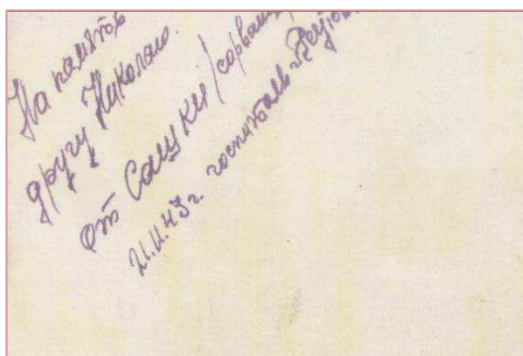 На память
другу Николаю.
От Сашки /сорванец
21.11.43г. госпиталь г.